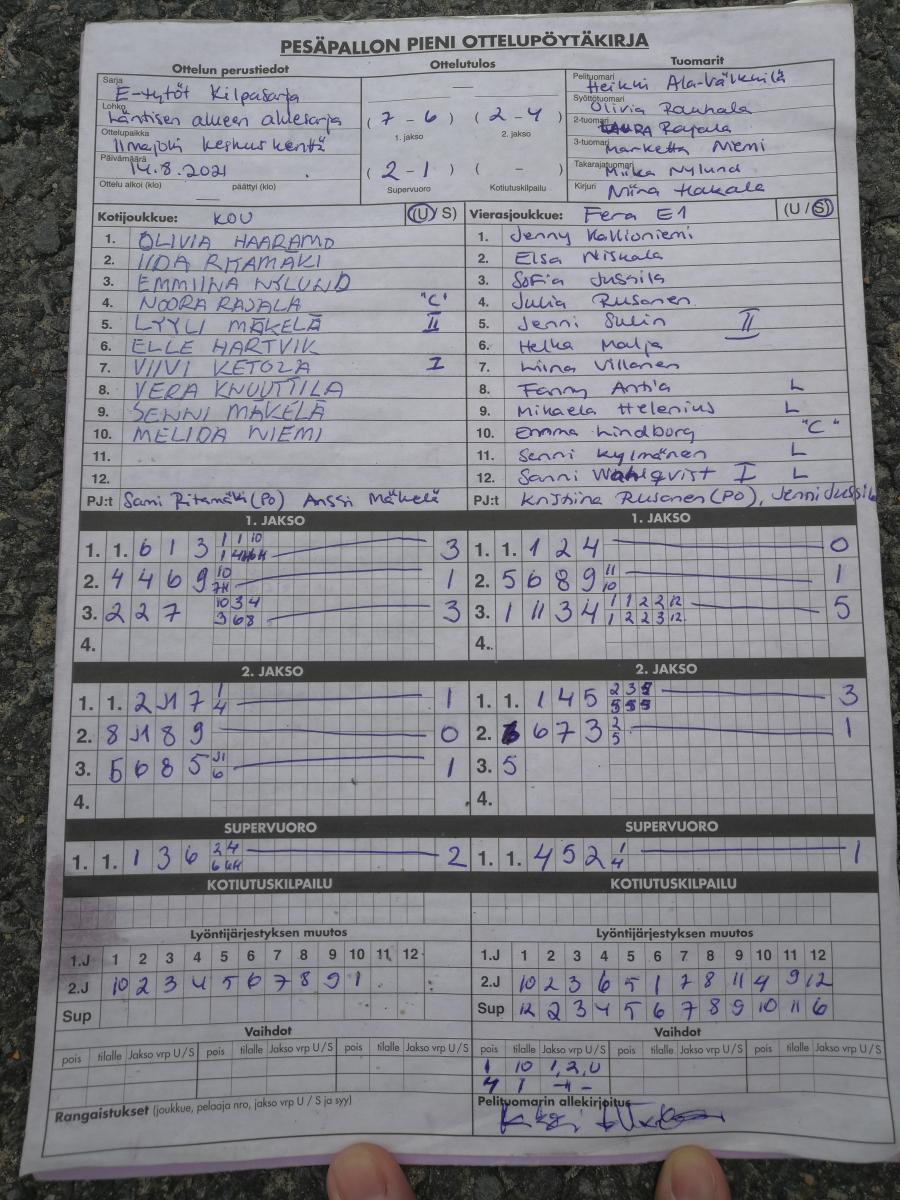 PESÄPALLON PIENI OTTELUPÖYTÄKIRJA
Ottelun perustiedot
Sarja
E-tytöt Kilpasarja
Lohko
Läntisen alueen aluesarja
Ottelupaikka
Ilmajoki keskuskenttä
Päivämäärä
14.8.2021
Ottelu alkoi (klo) päättyi (klo)
Ottelutulos
( 7 - 6 ) ( 2 - 4 )
1. jakso 2. jakso
( 2 - 1 ) ( - )
Supervuoro Kotiutuskilpailu
Tuomarit
Pelituomari
Heikki Ala-Välkkilä
Syöttötuomari
Olivia Rauhala
2-tuomari
Rajala
3-tuomari
Marketta Niemi
Takarajatuomari
Miika Nylund
Kirjuri
Niina Hakala
Kotijoukkue: KOU (U / S)
1. OLIVIA HAARAMO
2. IIDA RITAMÄKI
3. EMMIINA NYLUND
4. NOORA RAJALA "C"
5. LYYLI MÄKELÄ II
6. ELLE HARTVIK
7. VIIVI KETOLA I
8. VERA KNUUTTILA
9. SENNI MÄKELÄ
10. MELIDA NIEMI
11.
12.
PJ:t Sami Ritamäki (PO) Anssi Mäkelä
Vierasjoukkue: Fera E1 (U / S)
1. Jenny Kallioniemi
2. Elsa Niskala
3. Sofia Jussila
4. Julia Rusanen
5. Jenni Sulin II
6. Helka Malja
7. Liina Villanen
8. Fanny Antia L
9. Mikaela Helenius L
10. Emma Lindborg "C"
11. Senni Kylmänen L
12. Sanni Wahlqvist I L
PJ:t Kristiina Rusanen (PO), Jenni Jussila
1. JAKSO
1. 1. 6 1 3 1 1 10 3
2. 4 4 6 9 10 1
3. 2 2 7 10 3 4 3 6 8 3
4.
1. JAKSO
1. 1. 1 2 4 0
2. 5 6 8 9 11 10 1
3. 1 11 3 4 1 1 2 2 12 1 2 2 3 12 5
4.
2. JAKSO
1. 1. 2 11 7 1 4 1
2. 8 11 8 9 0
3. 5 6 8 5 11 6 1
4.
2. JAKSO
1. 1. 1 4 5 2 3 5 5 5 3
2. 6 7 3 2 5 1
3. 5
4.
SUPERVUORO
1. 1. 1 3 6 2 4 2
SUPERVUORO
1. 1. 4 5 2 1 4 1
KOTIUTUSKILPAILU
KOTIUTUSKILPAILU
Lyöntijärjestyksen muutos
1.J 1 2 3 4 5 6 7 8 9 10 11 12
2.J 10 2 3 4 5 6 7 8 9 1
Sup
Lyöntijärjestyksen muutos
1.J 1 2 3 4 5 6 7 8 9 10 11 12
2.J 10 2 3 6 5 1 7 8 11 4 9 12
Sup 12 2 3 4 5 6 7 8 9 10 11 6
Vaihdot
pois tilalle Jakso vrp U / S pois tilalle Jakso vrp U / S pois tilalle Jakso vrp U / S
Vaihdot
pois tilalle Jakso vrp U / S pois tilalle Jakso vrp U / S pois tilalle Jakso vrp U / S
1 10 1, 2, U
4 1 -11-
Rangaistukset (joukkue, pelaaja nro, jakso vrp U / S ja syy)
Pelituomarin allekirjoitus